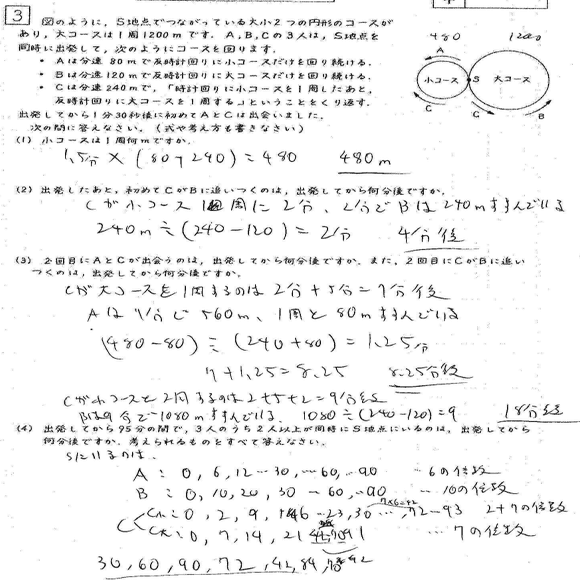 3
図のように,S地点でつながっている大小2つの円形のコースが
あり,大コースは1周1200mです.A,B,Cの3人は,S地点を
同時に出発して,次のようにコースを回ります.
・Aは分速80mで反時計回りに小コースだけを回り続ける.
・Bは分速120mで反時計回りに大コースだけを回り続ける.
・Cは分速240mで,「時計回りに小コースを1周したあと,
反時計回りに大コースを1周する」ということをくり返す.
480 1200
A
小コース S 大コース
C C B
出発してから1分30秒後に初めてAとCは出会いました.
次の問に答えなさい.(式や考え方も書きなさい)
(1) 小コースは1周何mですか.
1.5分×(80+240)=480 480m
(2) 出発したあと,初めてCがBに追いつくのは,出発してから何分後ですか.
Cが小コース1周に2分、2分でBは240mすすんでいる
240m÷(240-120)=2分 4分後
(3) 2回目にAとCが出会うのは,出発してから何分後ですか.また,2回目にCがBに追い
つくのは,出発してから何分後ですか.
Cが大コースを1周するのは2分+5分=7分後
Aは7分で560m、1周と80mすすんでいる
(480-80)÷(240+80)=1.25分
7+1.25=8.25 8.25分後
Cが小コースを2周するのは2+5+2=9分後
Bは9分で1080mすすんでいる. 1080÷(240-120)=9 18分後
(4) 出発してから95分の間で,3人のうち2人以上が同時にS地点にいるのは,出発してから
何分後ですか.考えられるものをすべて答えなさい.
Sにいるのは、
A:0,6,12…30,…60,…90 …6の倍数
B:0,10,20,30…60,…90 …10の倍数
7×6=42
0,2,9,16…23,30…,72…93 2+7の倍数
C
0,7,14,21 …7の倍数
30,60,90,72,42,84,